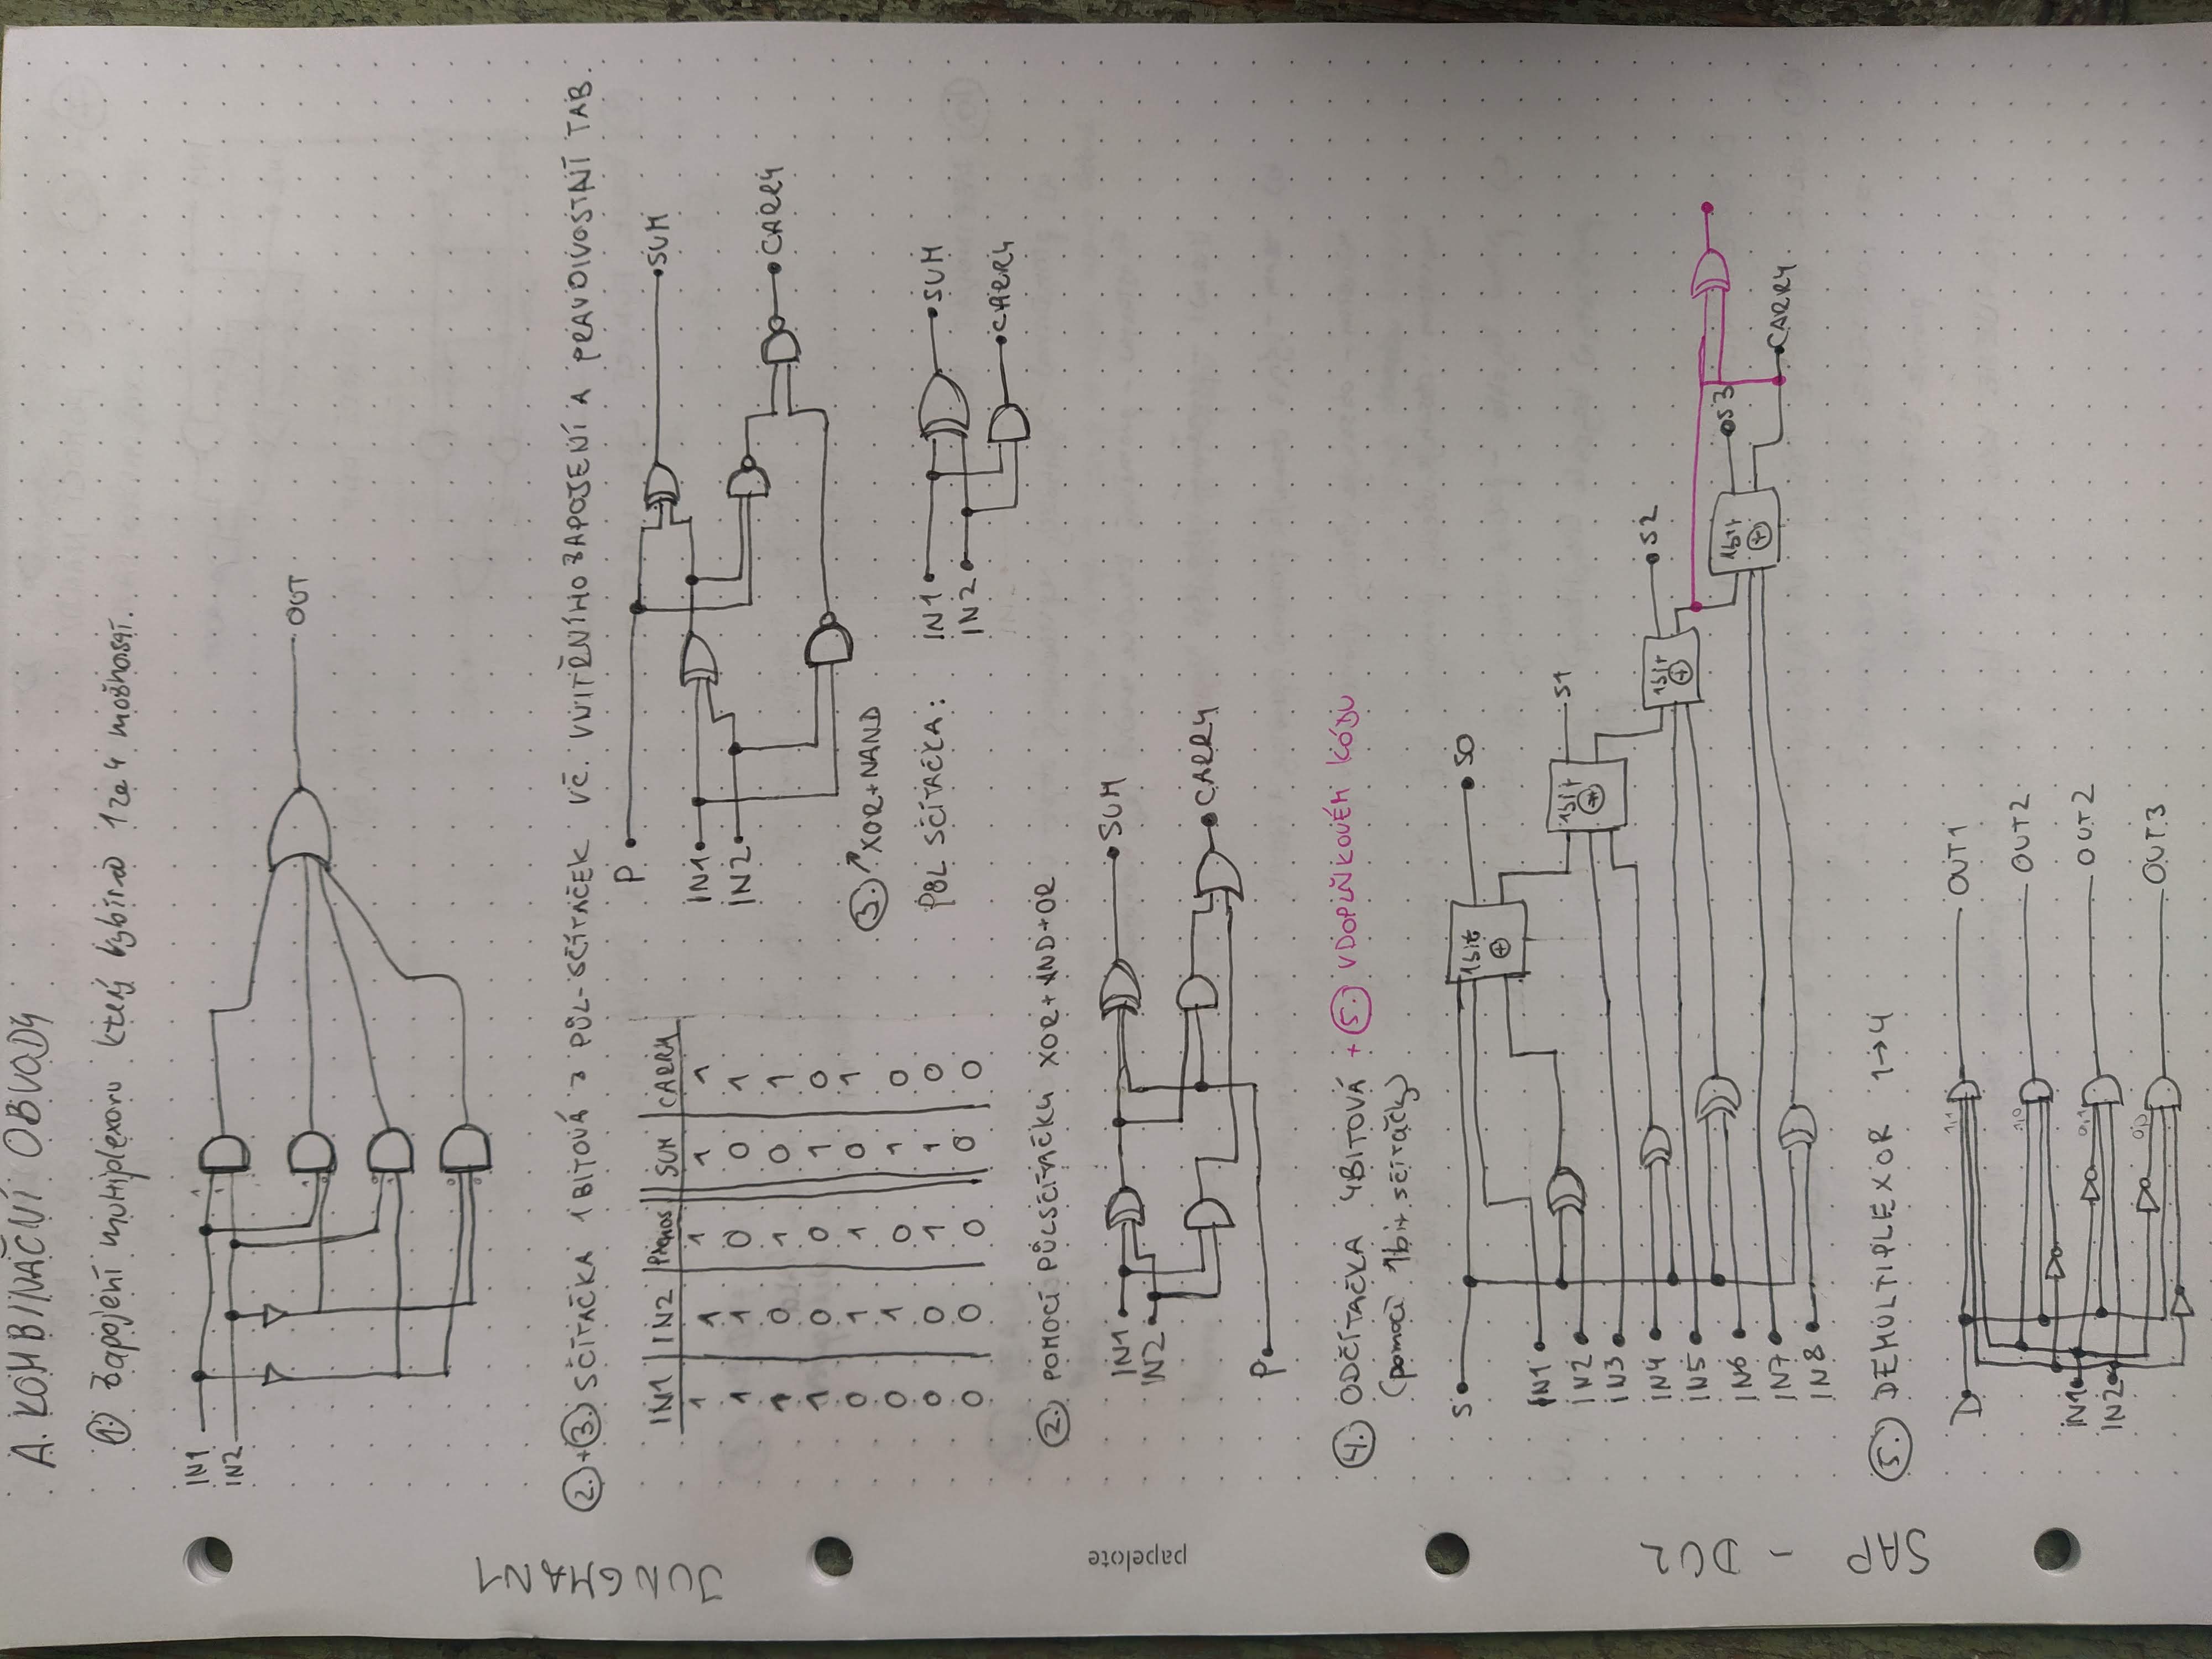 A. KOMBINAČNÍ OBVODY
1. Zapojení multiplexoru který vybírá 1 ze 4 možností.
IN1
IN2
1
1
1
0
0
1
0
0
OUT
2. + 3. SČÍTAČKA 1BITOVÁ z PŮL-SČÍTAČEK VČ. VNITŘNÍHO ZAPOJENÍ A PRAVDIVOSTNÍ TAB.
IN1 IN2 Přenos SUM CARRY
1 1 1 1 1
1 1 0 0 1
1 0 1 0 1
1 0 0 1 0
0 1 1 0 1
0 1 0 1 0
0 0 1 1 0
0 0 0 0 0
P
IN1
IN2
SUM
CARRY
3. ↗ XOR+NAND
PŮL SČÍTAČKA:
IN1
IN2
SUM
CARRY
2. POMOCÍ PŮLSČÍTAČKY XOR+AND+OR
IN1
IN2
P
SUM
CARRY
4. ODČÍTAČKA 4BITOVÁ + 5. V DOPLŇKOVÉM KÓDU
(pomocí 1bit sčítačky)
S
IN1
IN2
IN3
IN4
IN5
IN6
IN7
IN8
1bit
+
S0
1bit
+
S1
1bit
+
S2
1bit
+
S3
CARRY
5. DEMULTIPLEXOR 1→4
D
IN1
IN2
1,1
OUT1
1,0
OUT2
0,1
OUT2
0,0
OUT3
JUNGMAN1
papelote
SAP - DU2